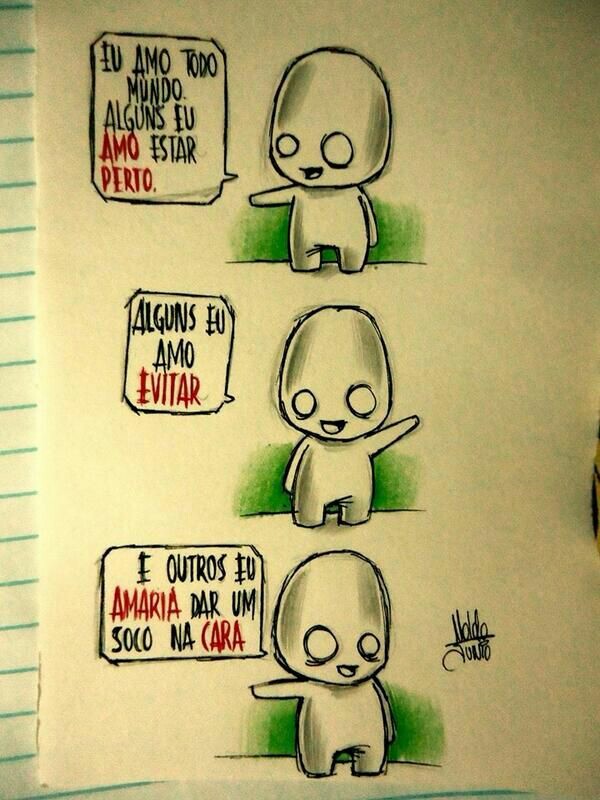 EU AMO TODO
MUNDO.
ALGUNS EU
AMO ESTAR
PERTO.
ALGUNS EU
AMO
EVITAR
E OUTROS EU
AMARIA DAR UM
SOCO NA CARA
JUNIO